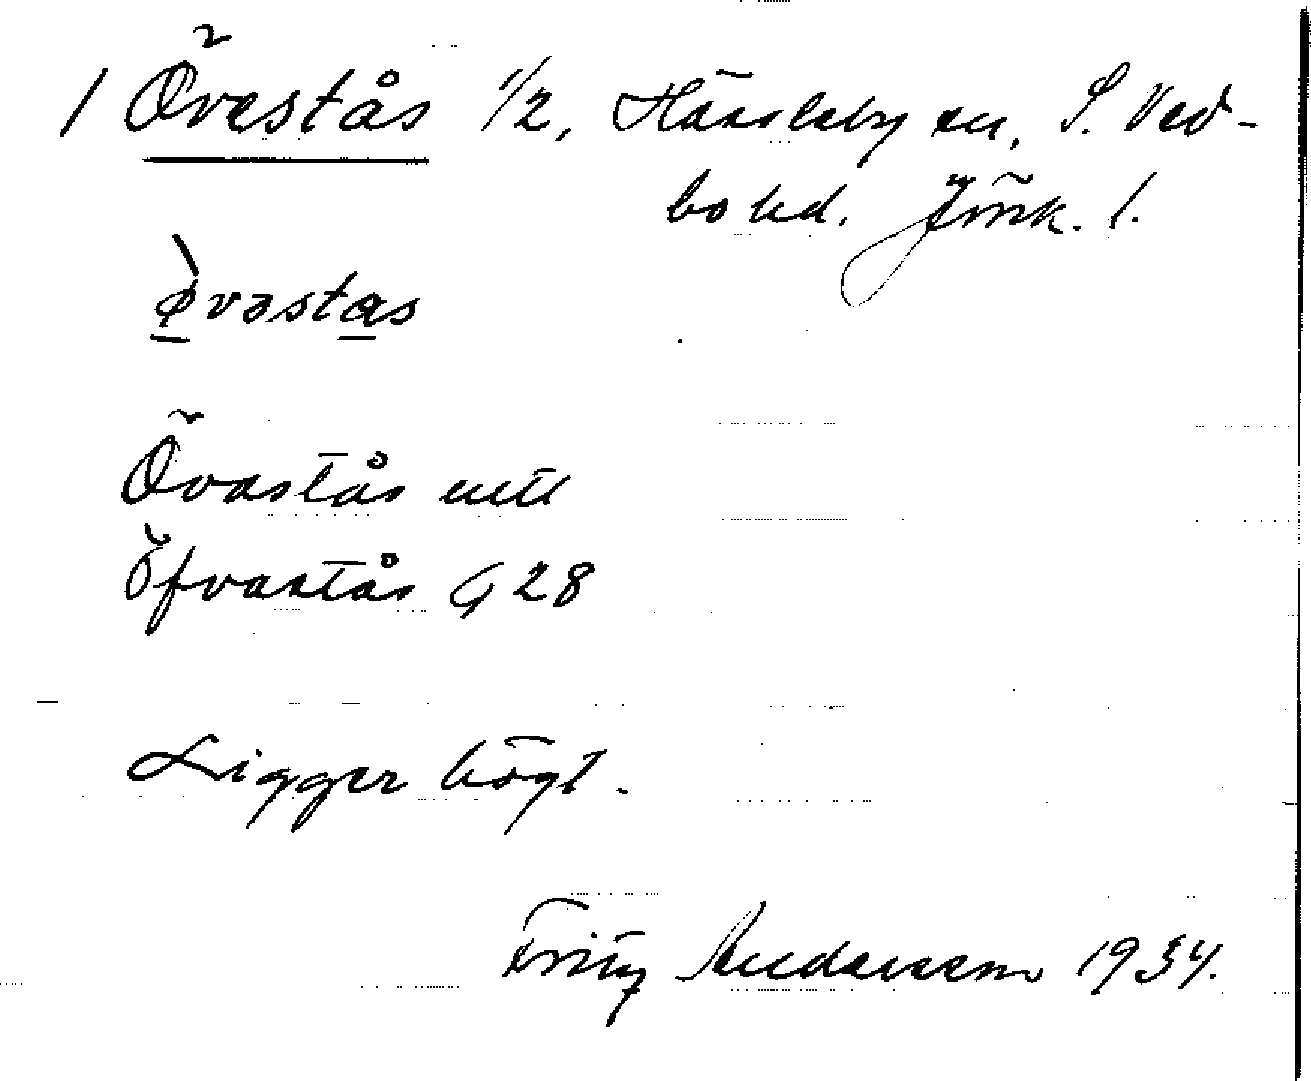 1 Övestås 1/2, Hässleby sn, S. Ved-
bo hd. Jönk. l.
ø̀vəstas
Övastås uttl
Öfvastås G 28
Ligger högt.
Fritz Andersson 1934.